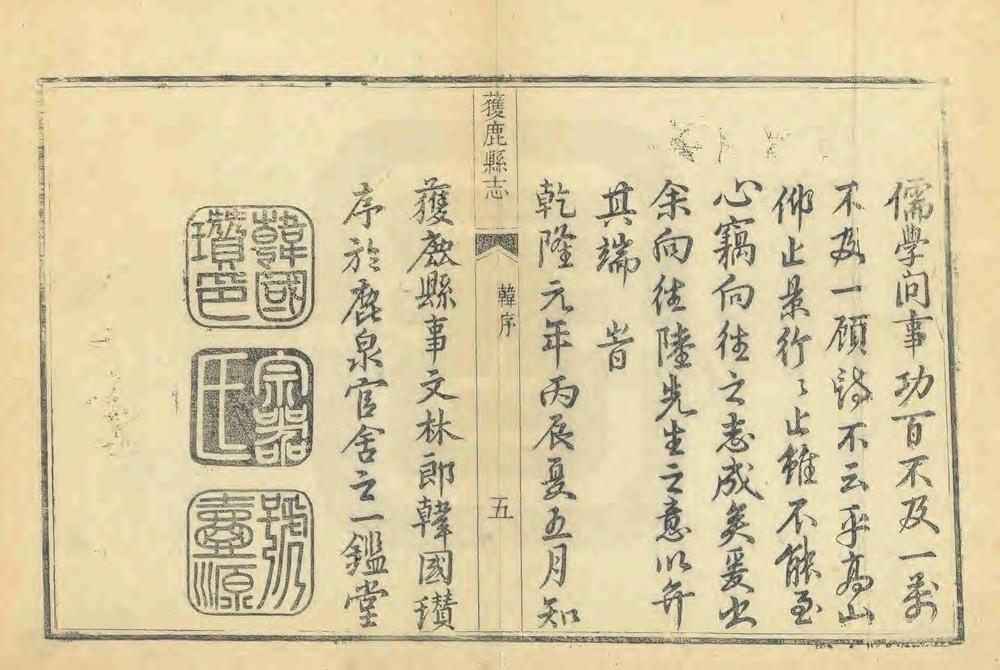 儒學問事功百不及一萬
不及一顧詩不云乎高山
仰止景行行止雖不能至
心竊向往之志成矣爰出
余向往陸先生之意以弁
其端 旹
乾隆元年丙辰夏五月知
獲鹿縣志
韓序
五
獲鹿縣事文林郎韓國瓚
序於鹿泉官舍之一鑑堂
韓國瓚印
號
源